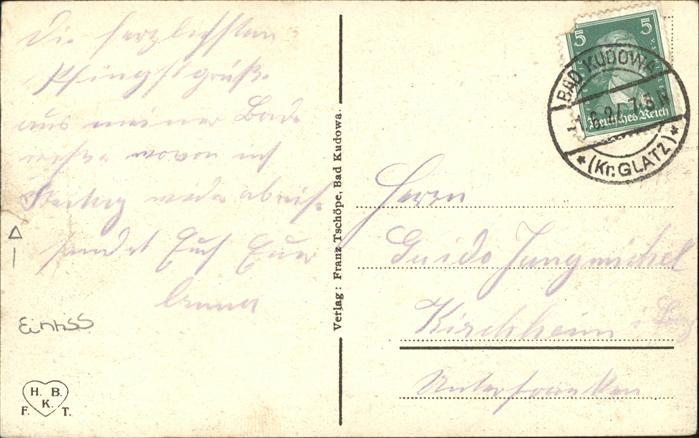 Die herzlichsten
Pfingstgrüße
aus meiner Bade
wovon ich
Freitag wieder abreise
sendet Euch Euer
Einriss
H. B.
K.
F. T.
Verlag: Franz Tschöpe, Bad Kudowa.
5 5
Deutsches Reich
BAD KUDOWA
* (Kr. GLATZ) *
Herrn
Guido Jungmichel
Kirchheim i
Unterfranken